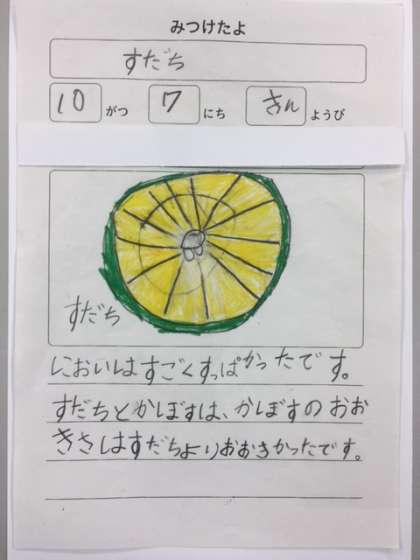 みつけたよ
すだち
10 がつ 7 にち きん ようび
すだち
においはすごくすっぱかったです。
すだちとかぼすは、かぼすのおお
きさはすだちよりおおきかったです。